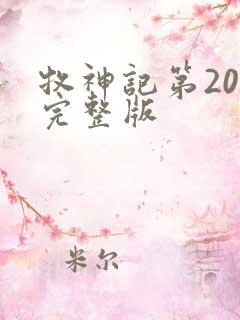 牧神記第20
完整版
米尔